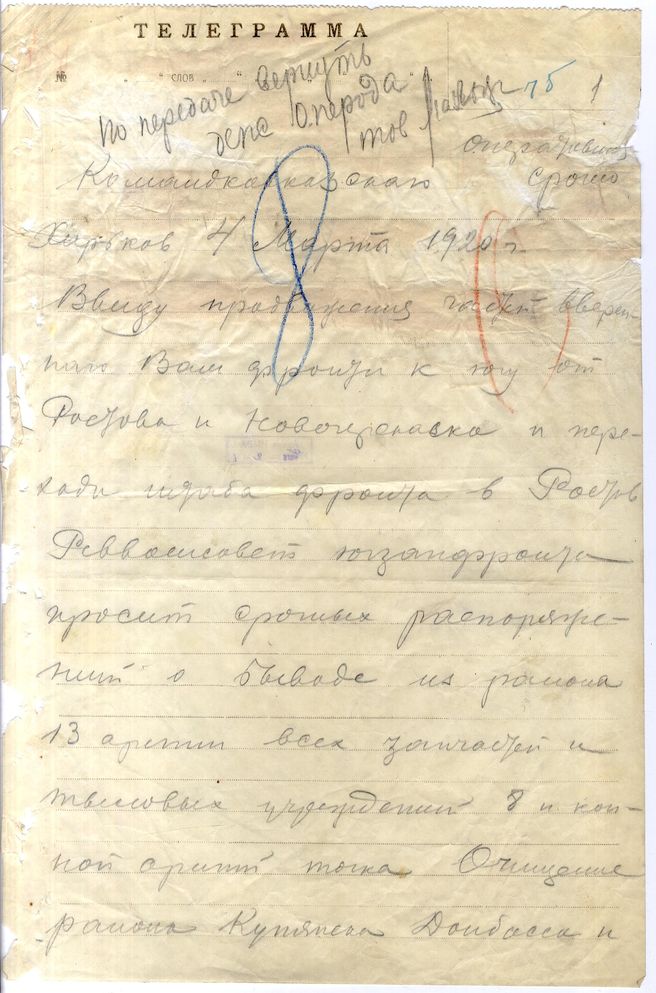 ТЕЛЕГРАММА
№ " " слов " " "
По передаче вернуть
деж Оперода
тов
75 1
Оперативная
Срочно
Командкавказскаго
Харьков 4 Марта 1920 г
Ввиду продвижения частей вверен-
наго Вам фронта к югу от
Ростова и Новочеркасска и пере-
хода штаба фронта в Ростов
Реввоенсовет югзапфронта
просит срочных распоряже-
ний о выводе из района
13 армии всех запчастей и
тыловых учреждений 8 и кон-
ной армий точка Очищение
района Купянска Донбасса и